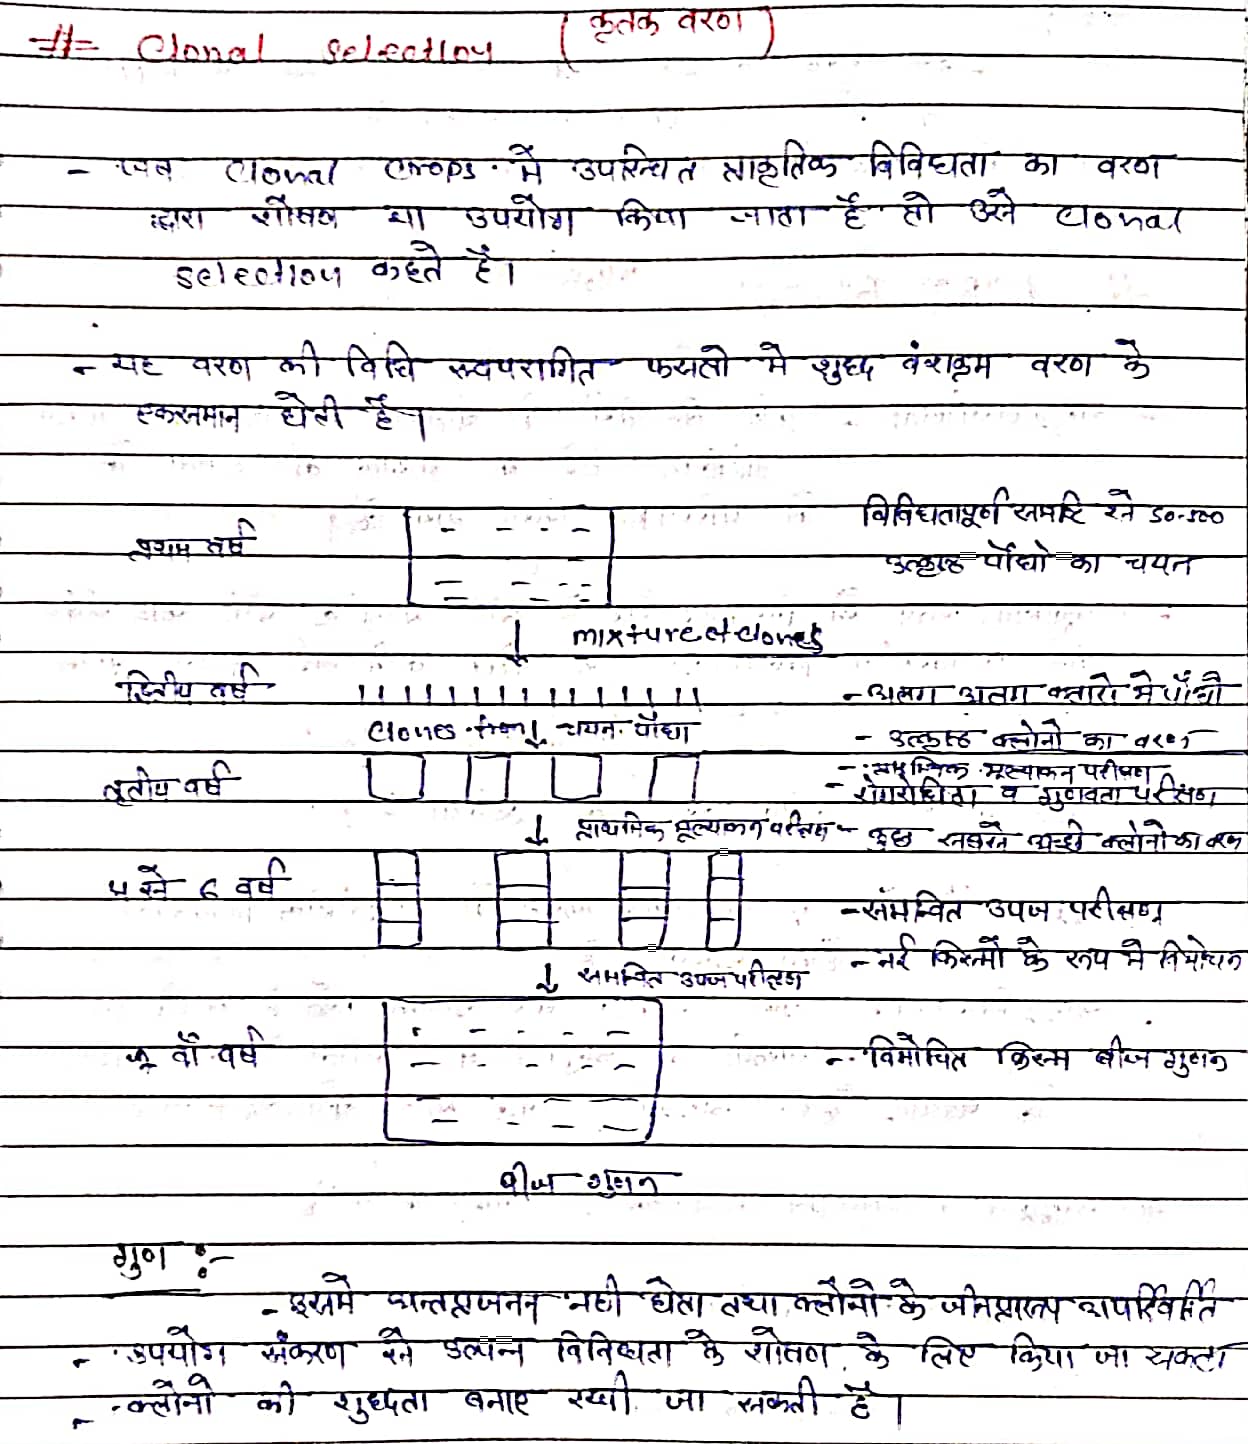 # Clonal selection (कृतक वरण)
- जब clonal crops में उपस्थित प्राकृतिक विविधता का वरण
द्वारा शोषण या उपयोग किया जाता है तो उसे clonal
selection कहते है।
- यह वरण की विधि स्वपरागित फसलो मे शुध्द वंशक्रम वरण के
एकसमान होती है।
विविधतापूर्ण समष्टि से 50-500
प्रथम वर्ष
उत्कृष्ठ पौधो का चयन
↓ mixture of clones
द्वितीय वर्ष
- अलग अलग कतारो मे पौधो
clones from ↓ चयन पौधा
- उत्कृष्ठ क्लोनो का वरण
तृतीय वर्ष
- प्राथमिक मूल्याकन परीक्षण
- रोगरोधिता व गुणवता परीक्षण
↓ प्राथमिक मूल्याकन परीक्षण
- कुछ सबसे अच्छे क्लोनो का वरण
4 से 6 वर्ष
- समन्वित उपज परीक्षण
- नई किस्मों के रूप मे विमोचन
↓ समन्वित उपज परीक्षण
वाँ वर्ष
- विमोचित किस्म बीज गुणन
बीज गुणन
गुण :-
- इसमे अन्तप्रजनन नही होता तथा क्लोनो के जीनप्रारूप अपरिवर्तित
- उपयोग संकरण से उत्पन्न विविधता के शोषण के लिए किया जा सकता
- क्लोनो की शुध्दता बनाए रखी जा सकती है।